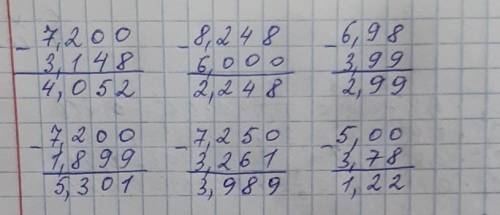 - 7,200 - 8,248 - 6,98
3,148 6,000 3,99
4,052 2,248 2,99
- 7,200 - 7,250 - 5,00
1,899 3,261 3,78
5,301 3,989 1,22